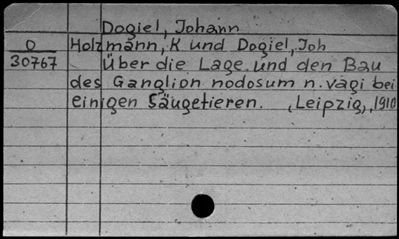 Dogiel, Johann
O Holzmann, K und Dogiel, Joh
30767 Über die Lage und den Bau
des Ganglion nodosum n. vagi bei
einigen Säugetieren. (Leipzig,) 1910